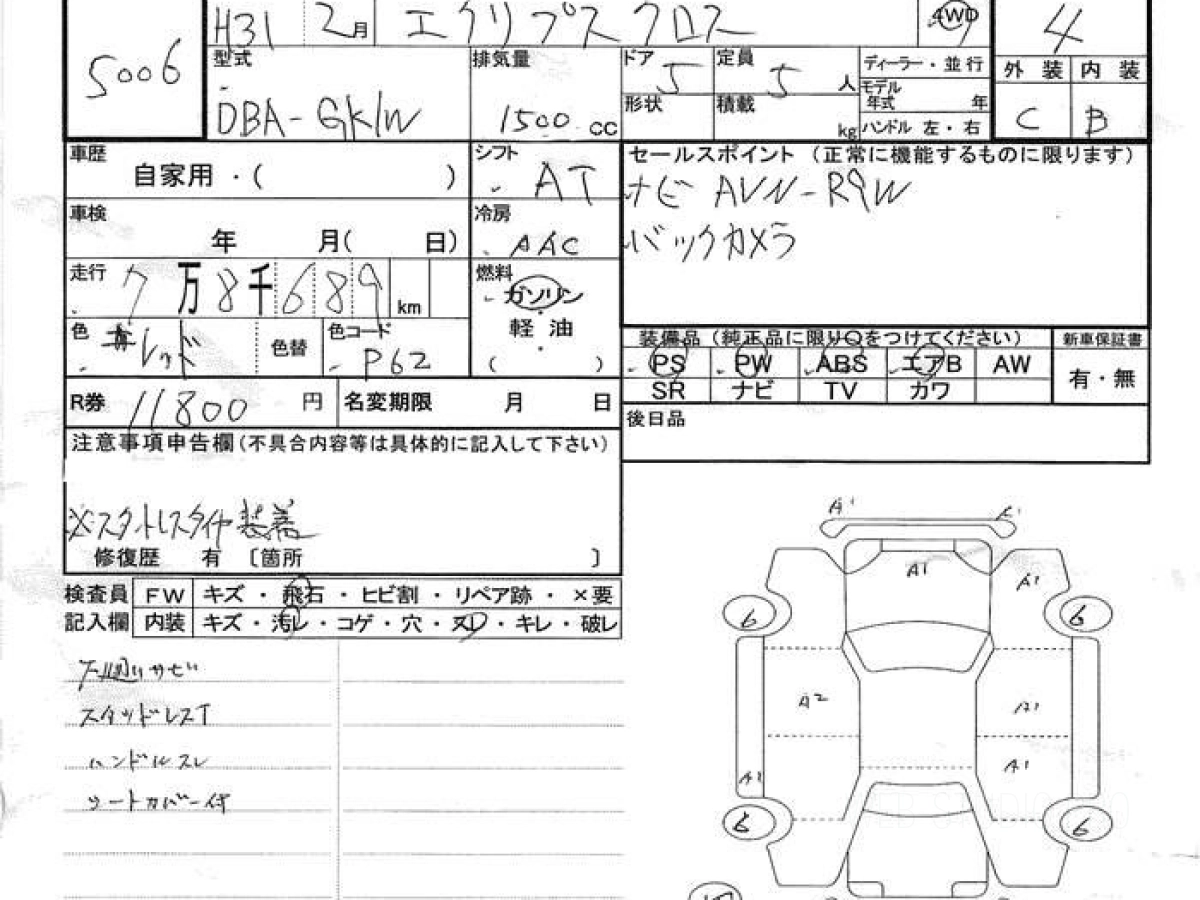 5006
H31 2月 エクリプスクロス 4WD 4
型式 DBA-GK1W
排気量 1500 cc
ドア 5 定員 5 人
形状 積載 kg
ディーラー・並行
モデル年式 年
ハンドル 左・右
外装 内装
C B
車歴 自家用・( )
シフト AT
セールスポイント (正常に機能するものに限ります)
ナビ AVN-R9W
バックカメラ
車検 年 月( 日)
冷房 AAC
走行 7万8千689 km
燃料 ガソリン
軽油
( )
色 レッド 色替 色コード P62
装備品 (純正品に限り○をつけてください) 新車保証書
PS PW ABS エアB AW 有・無
SR ナビ TV カワ
R券 11800 円 名変期限 月 日
後日品
注意事項申告欄(不具合内容等は具体的に記入して下さい)
※スタットレスタイヤ装着
修復歴 有 〔箇所 〕
検査員 FW キズ・飛石・ヒビ割・リペア跡・×要
記入欄 内装 キズ・汚レ・コゲ・穴・スレ・キレ・破レ
下廻りサビ
スタッドレスT
ハンドルスレ
シートカバー付
A1
A1 A1
6 6
A2 A1
A1 A1
6 6